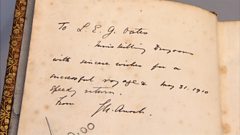 To L. E. G. Oates
Inniskilling Dragoons
with sincere wishes for a
successful voyage & May 31. 1910
speedy return.
from